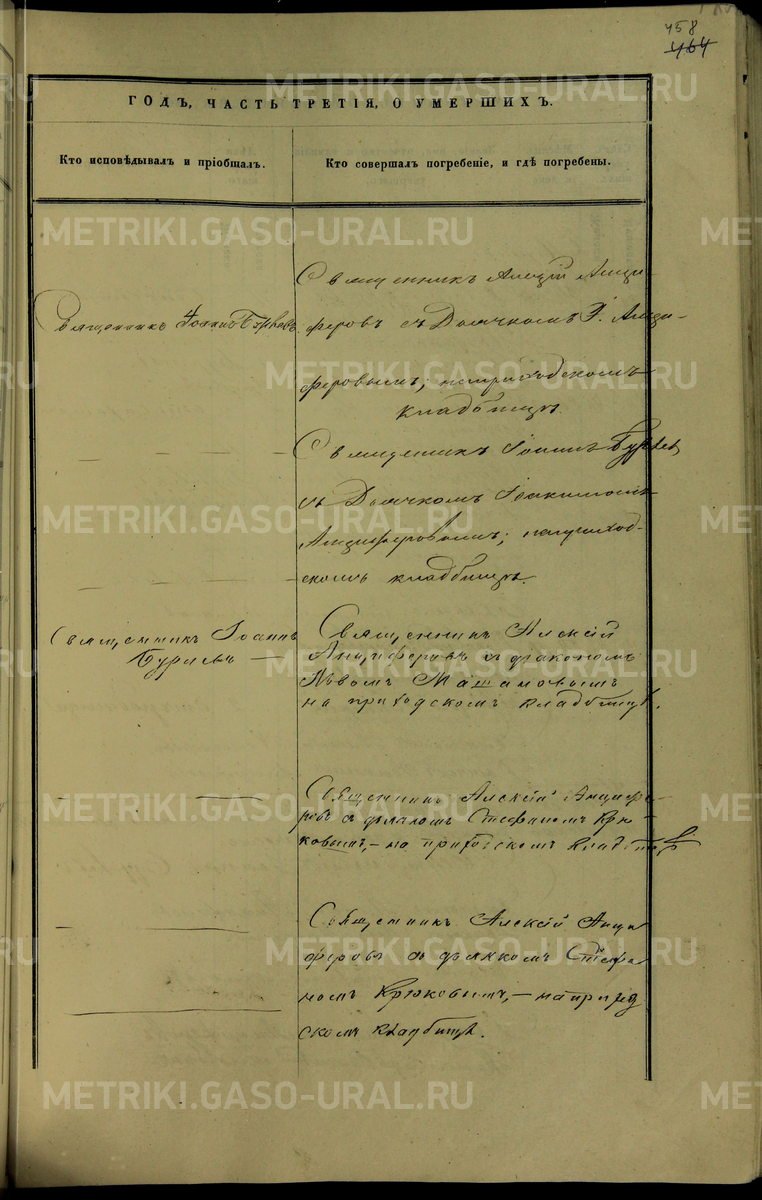 458
464
ГОДЪ, ЧАСТЬ ТРЕТІЯ, О УМЕРШИХЪ.
Кто исповѣдывалъ и пріобщалъ.
Кто совершалъ погребеніе, и гдѣ погребены.
Священникъ Алексій Анци-
Священникъ Іоаннъ Бурчевъ
феровъ съ Дьячкомъ І. Анци-
феровымъ; наприходскомъ
кладбищѣ.
Священникъ Іоаннъ
съ Дьячкомъ Іоакимомъ
Анциферовымъ; наприход-
скомъ кладбищѣ.
Священникъ Іоаннъ
Священникъ Алексій
Анциферовъ съ діакономъ
Львомъ
на приходскомъ кладбищѣ.
Священникъ Алексій Анцифе-
ровъ съ дьячкомъ Стефаномъ Крю-
ковымъ, – на приходскомъ кладбищѣ
Священникъ Алексій Анци
феровъ съ дьячкомъ Стефа
номъ Крюковымъ, – на приход
скомъ кладбищѣ.
METRIKI.GASO-URAL.RU